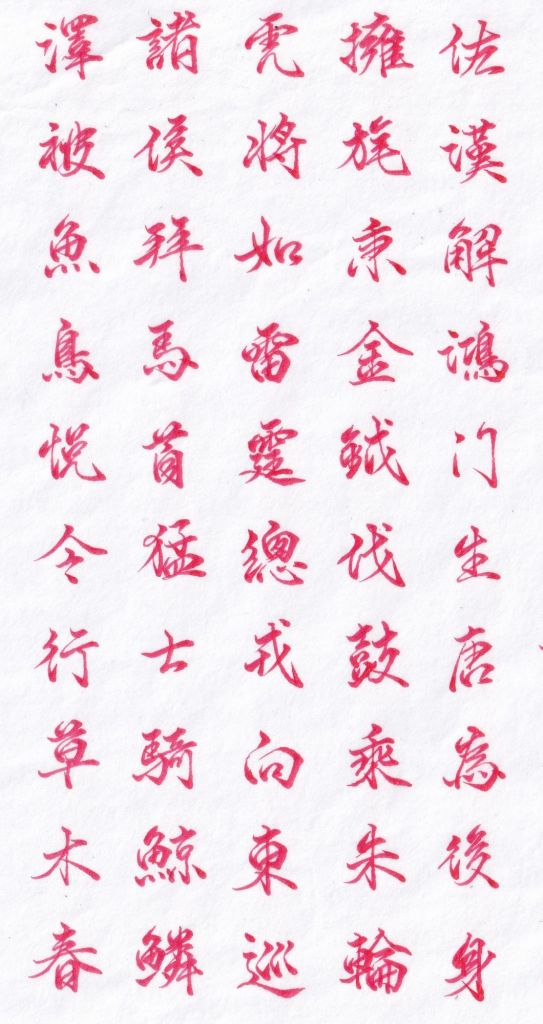 佐漢解鴻门生唐為後身
擁旄秉金鉞伐鼓乘朱輪
虎將如雷霆總戎向東巡
諸侯拜馬首猛士騎鯨鱗
澤被魚鳥悦令行草木春